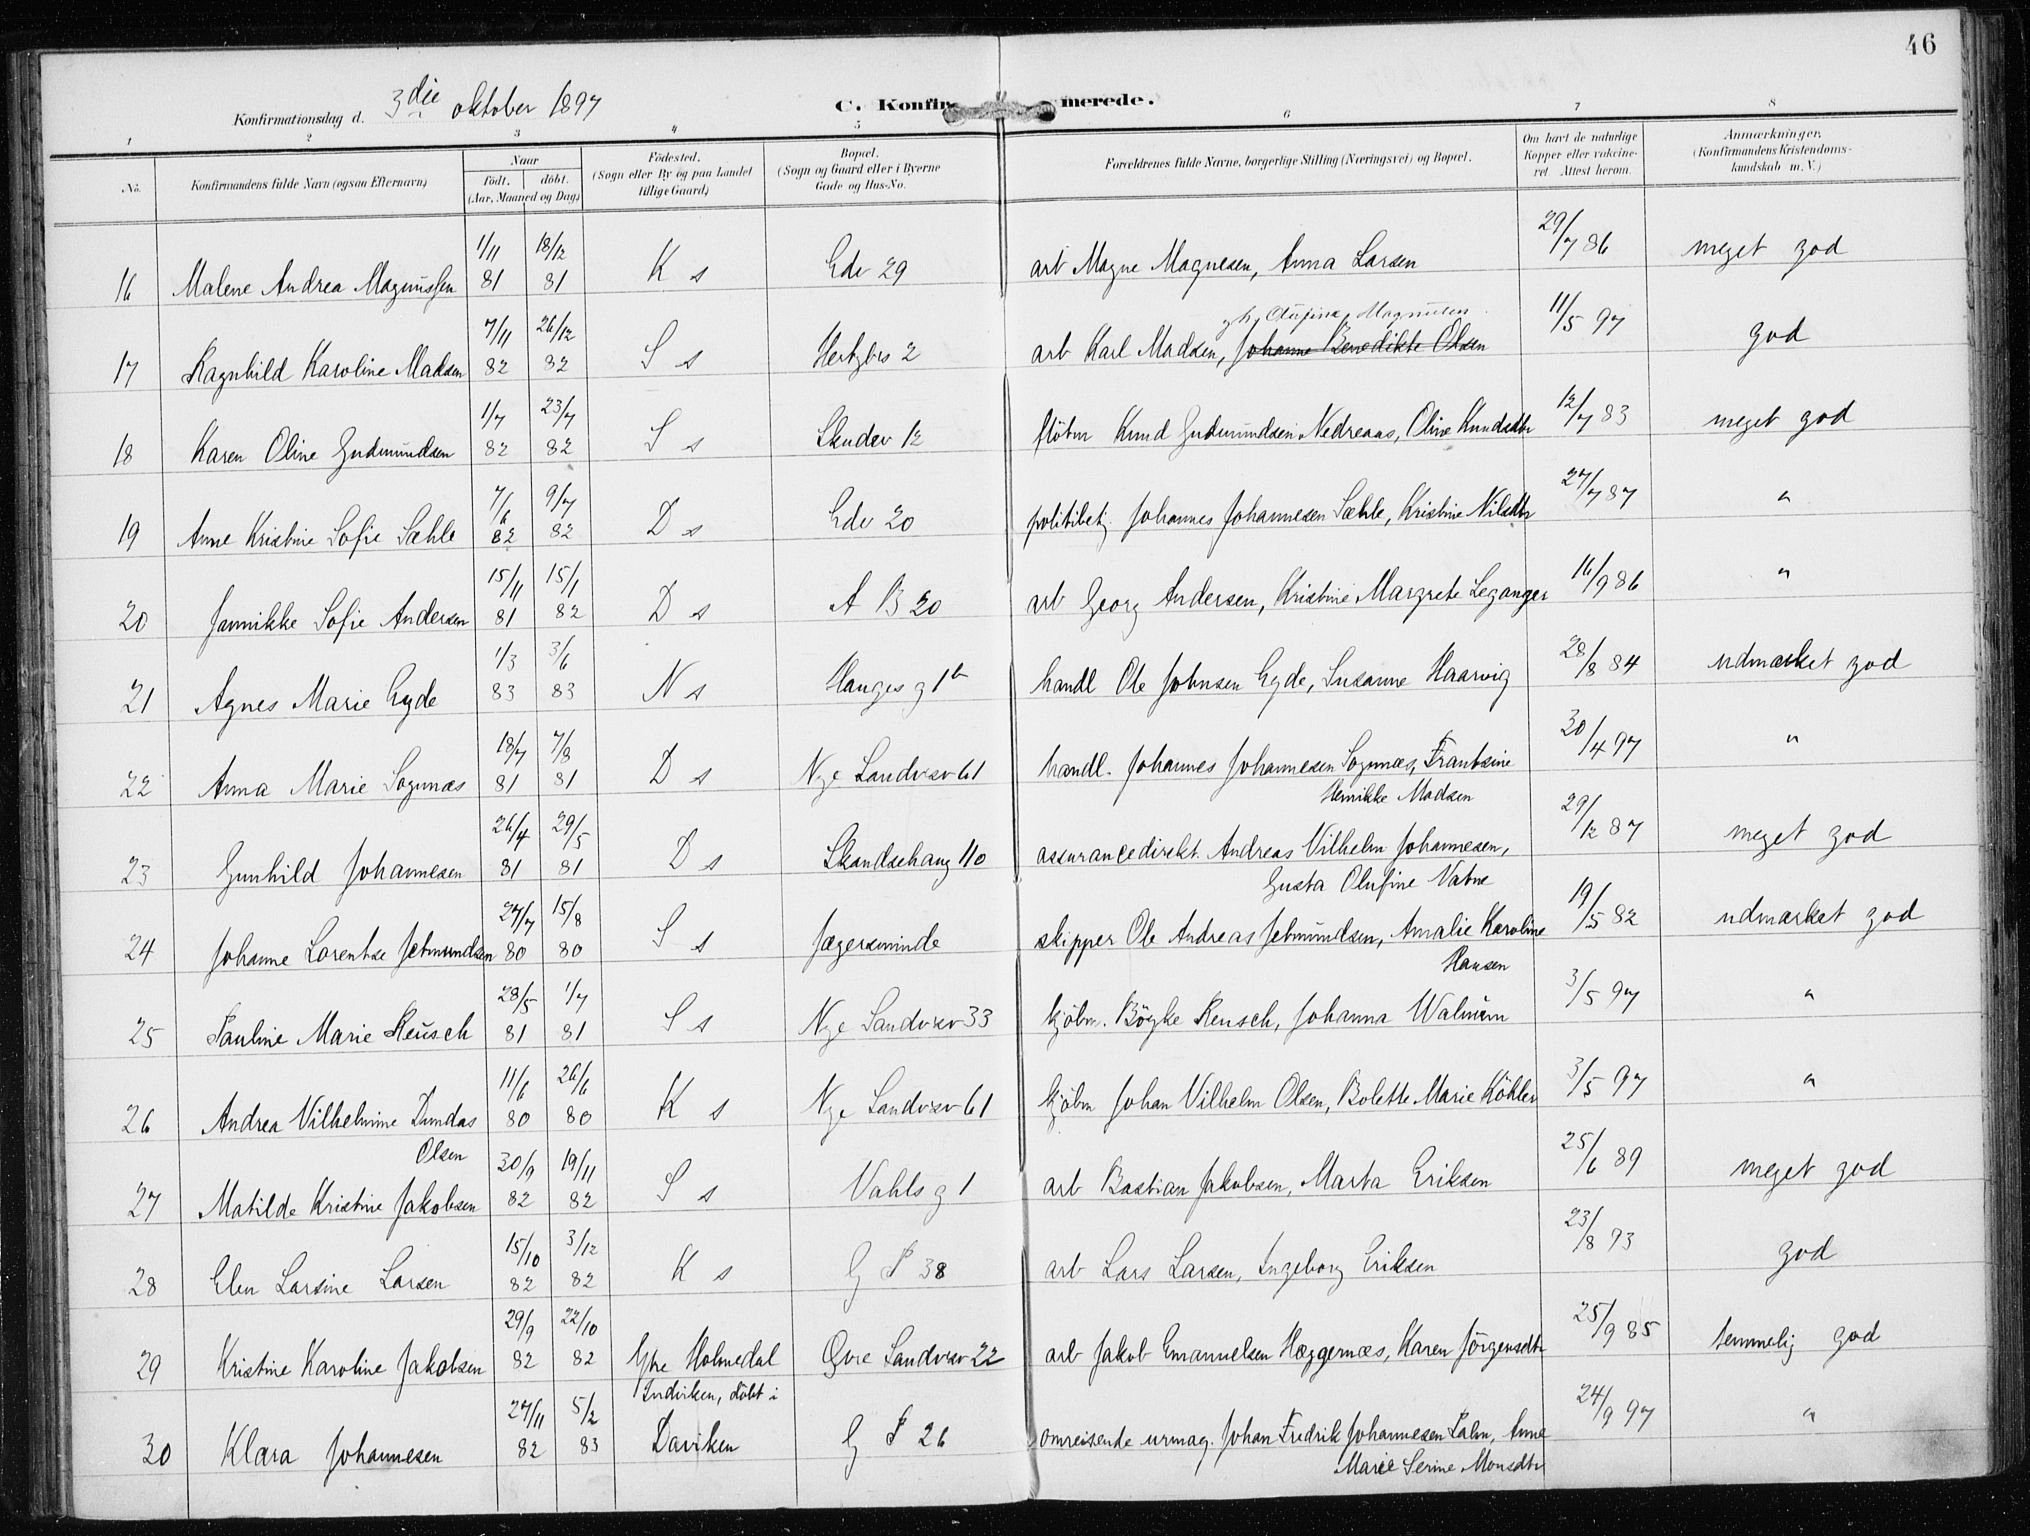 46
Konfirmationsdag d. 3die oktober 1897
C. Konfirmerede.
1 2 3 4 5 6 7 8
No. Konfirmandens fulde Navn (ogsaa Efternavn) Naar født. døbt. (Aar, Maaned og Dag) Fødested. (Sogn eller By og paa Landet tillige Gaard) Bopæl. (Sogn og Gaard eller i Byerne Gade og Hus-No. Forældrenes fulde Navne, borgerlige Stilling (Næringsvei) og Bopæl. Om havt de naturlige Kopper eller vakcineret. Attest herom. Anmærkninger. (Konfirmandens Kristendomskundskab m. V.)
16 Malene Andrea Magnussen 1/11 81 18/12 81 K s Edv 29 arb Magne Magnesen, Anna Larsen 29/7 86 meget god
17 Ragnhild Karoline Madsen 7/11 82 26/12 82 S s Hertzbrs 2 arb Karl Madsen, Johanne Benedikte Olsen 11/5 97 god
Olufine Magnusen
18 Karen Oline Gudmundsen 1/7 82 23/7 82 S s Skudev 12 fløtm Knud Gudmundsen Nedreaas, Oline Knudsdtr 12/7 83 meget god
19 Anne Kristine Sofie Sæhle 7/6 82 9/7 82 D s Edv 20 politibetj. Johannes Johannesen Sæhle, Kristine Nilsdtr 27/7 87 "
20 Jannikke Sofie Andersen 15/11 81 15/1 82 D s A B 20 arb Georg Andersen, Kristine Margrete Leganger 16/9 86 "
21 Agnes Marie Eyde 1/3 83 3/6 83 N s Hauges g 1b handl Ole Johnsen Eyde, Susanne Haarvig 28/8 84 udmærket god
22 Anna Marie Sognnæs 18/7 81 7/8 81 D s Nye Sandvsv 61 handl. Johannes Johannesen Sognnæs, Frantsine Henrikke Madsen 30/4 97 "
23 Gunhild Johannesen 26/4 81 29/5 81 D s Skandsehaug 110 assurancedirekt. Andreas Vilhelm Johannesen, Gusta Olufine Vatne 29/12 87 meget god
24 Johanne Lorentse Jetmundsen 27/7 80 15/8 80 S s Jægersminde skipper Ole Andreas Jetmundsen, Amalie Karoline Hansen 19/5 82 udmærket god
25 Pauline Marie Reusch 28/5 81 1/7 81 S s Nye Sandvsv 33 kjøbm. Böyke Reusch, Johanna Walnùm 3/5 97 "
26 Andrea Vilhelmine Dundas Olsen 11/6 80 26/6 80 K s Nye Sandvsv 61 kjøbm Johan Vilhelm Olsen, Bolette Marie Köhler 3/5 97 "
27 Matilde Kristine Jakobsen 30/9 82 19/11 82 S s Vahls g 1 arb Bastian Jakobsen, Marta Eriksen 25/6 89 meget god
28 Elen Larsine Larsen 15/10 82 3/12 82 K s G P 38 arb Lars Larsen, Ingeborg Eriksen 23/8 93 god
29 Kristine Karoline Jakobsen 29/9 82 22/10 82 Ytre Holmedal Øvre Sandvsv 22 arb Jakob Emanuelsen Hæggernæs, Karen Jörgensdtr 25/9 85 temmelig god
30 Klara Johannesen 27/11 82 5/2 83 Indviken, döbt i Daviken G P 26 omreisende urmag. Johan Fredrik Johannesen Palm, Anne Marie Serine Monsdtr 24/9 97 "